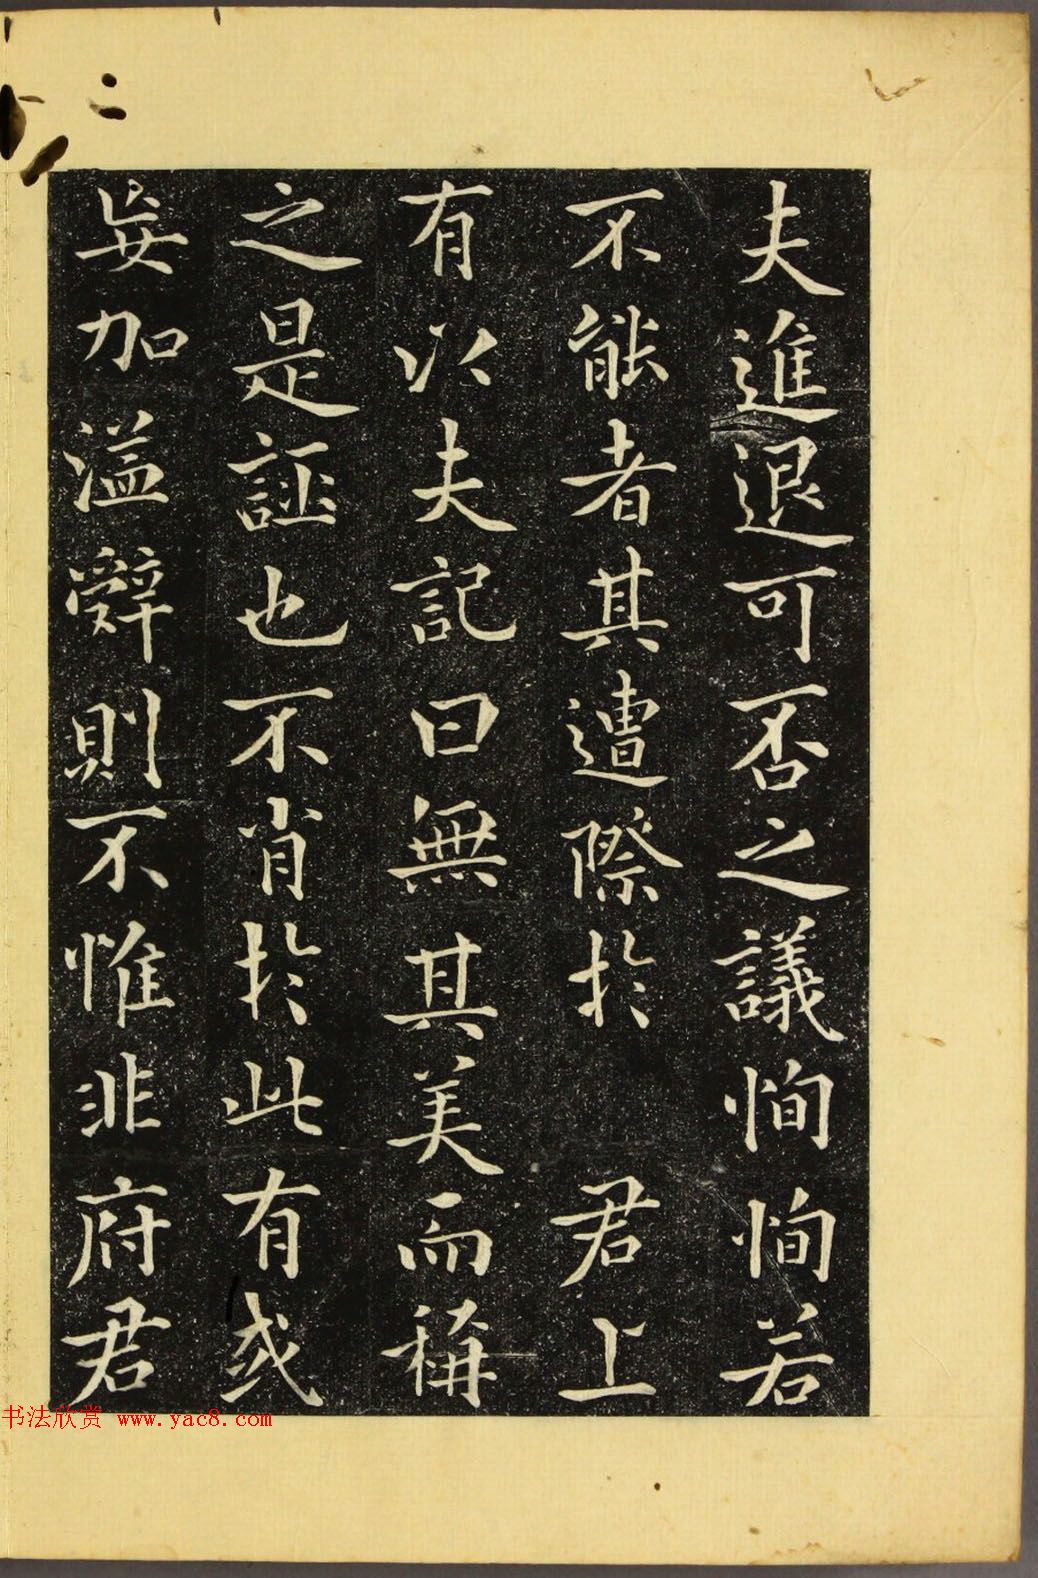 夫進退可否之議恂恂若
不能者其遭際於 君上
有以夫記曰無其美而稱
之是誣也不肖於此有或
妄加溢辭則不惟非府君
书法欣赏 www.yac8.com